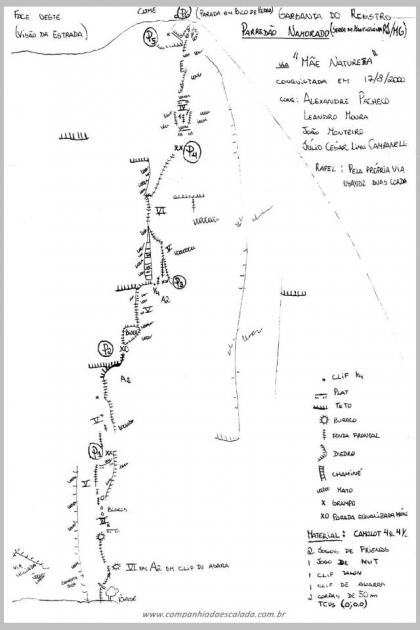 FACE OESTE
(VISÃO DA ESTRADA)
CUME
P6
(PARADA EM BICO DE PEDRA)
GARGANTA DO REGISTRO
PARREDÃO NAMORADO
P5
VIA "MÃE NATUREZA"
CONQUISTADA EM 17/8/2000
CONQ: ALEXANDRE PACHECO
LEANDRO MOURA
JOÃO MONTEIRO
JÚLIO CESAR LIMA CAMPANELL
RAPEL: PELA PRÓPRIA VIA
USANDO DUAS CORDA
IV
XX P4
VI
V
P3
A2
V
BLOCO
P2
XO
A2
V
P1
XX
VI
BLOCOS
III
VI EM A2 EM CLIF DE AGARRA
BASE
CLIF
PLAT
TETO
BURACO
FENDA FRONTAL
DIEDRO
CHAMINÉ
MATO
X GRAMPO
XO PARADA EQUALIZADA
MATERIAL: CAMALOT 4 & 4½
2 JOGOS DE FRIENDS
1 JOGO DE NUT
1 CLIF TALON
1 CLIF DE AGARRA
2 CORDAS DE 50 m
www.companhiadaescalada.com.br